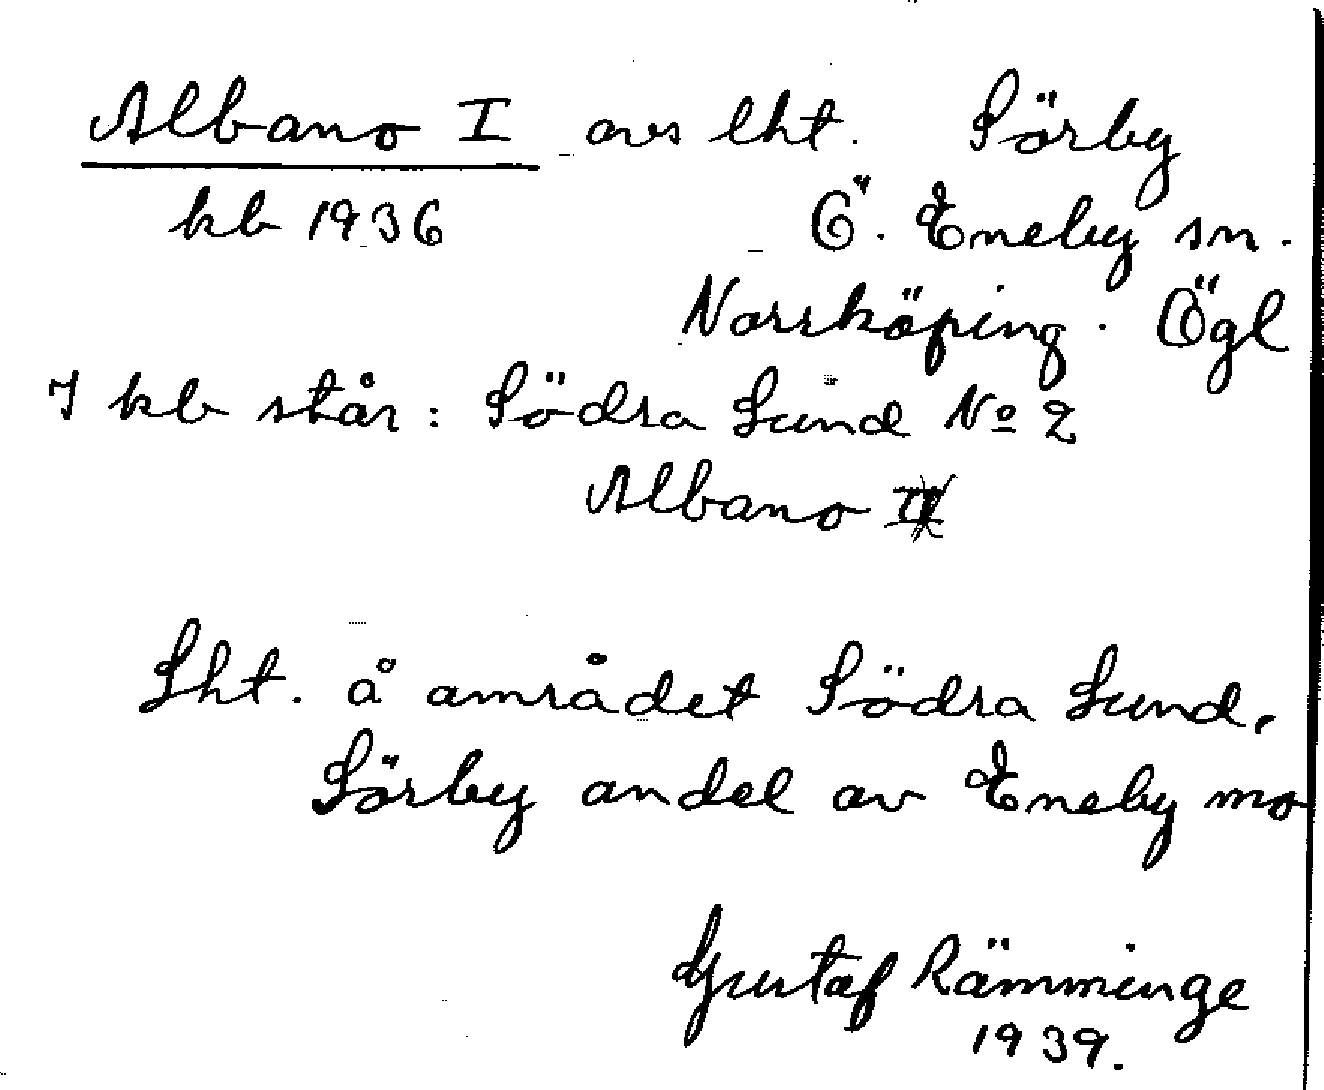 Albano I avs lht. Sörby
kb 1936 Ö. Eneby sn.
Norrköping. Ögl
I kb står: Södra Lund No 2
Albano
Lht. å området Södra Lund,
Sörby andel av Eneby mo
Gustaf Rämminge
1939.